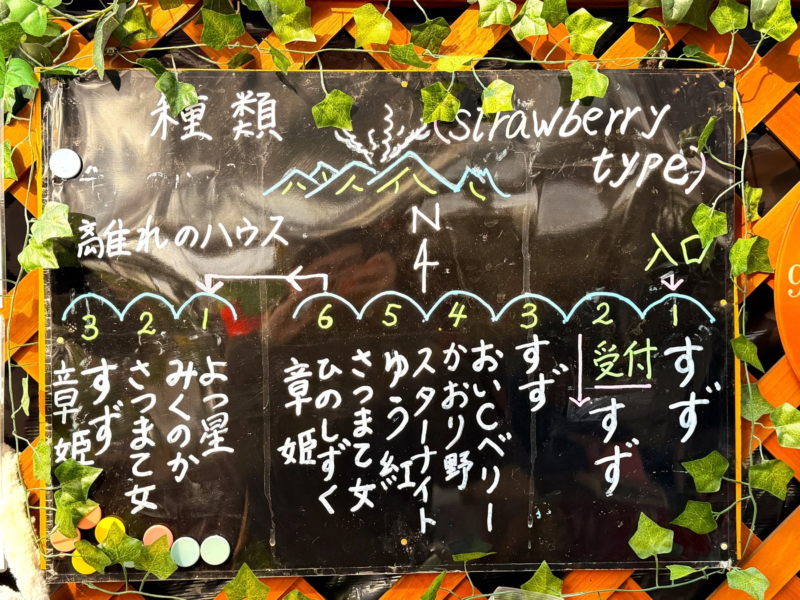 種類
(strawberry
type)
N
4
離れのハウス
入口
3
2
1
6
5
4
3
2
1
受付
すず
すず
すず
おいCベリー
かおり野
スターナイト
ゆう紅
さつまて女
ひのしずく
章姫
よつ星
みくのか
さつまて女
すず
章姫